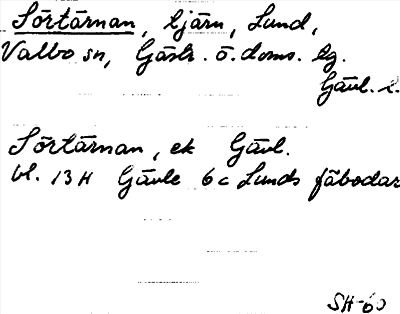 Sörtärnan, tjärn, Lund,
Valbo sn, Gästr. ö. doms. tg.
Gävl. l.
Sörtärnan, ek Gävl.
bl. 13H Gävle 6c Lunds fäbodar
SH-60